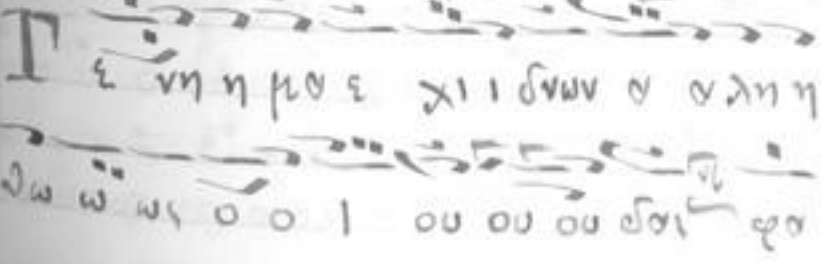 Γ ε νη η μα ε χι ι δνων α α λη η
θω ω ως ο ο ι ου ου ου δαι φα